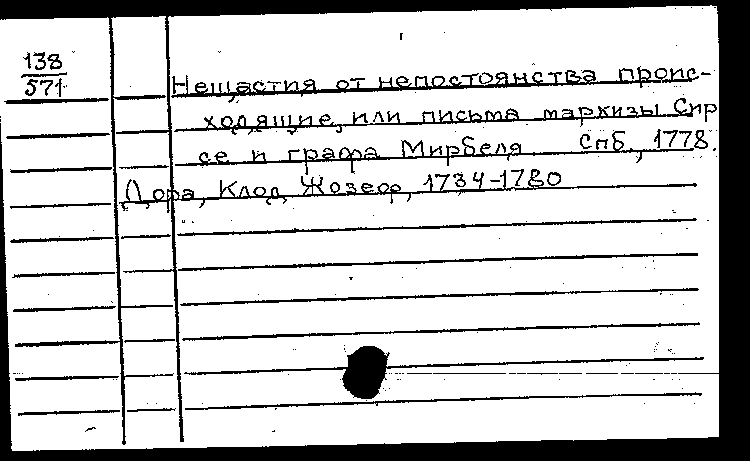 138
571
Нещастия от непостоянства проис-
ходящие, или письма маркизы Сир
се и графа Мирбеля Спб., 1778.
Дора, Клод Жозеф, 1734-1780